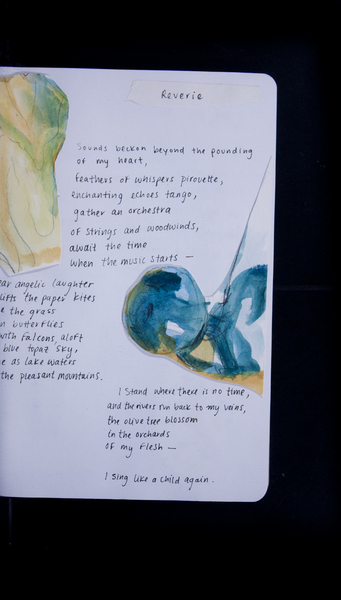 Reverie
Sounds beckon beyond the pounding
of my heart,
feathers of whispers pirouette,
enchanting echoes tango,
gather an orchestra
of strings and woodwinds,
await the time
when the music starts —
angelic laughter
lifts the paper kites
the grass
butterflies
with falcons, aloft
blue topaz sky,
as lake waters
the pleasant mountains.
I stand where there is no time,
and the rivers run back to my veins,
the olive tree blossom
in the orchards
of my flesh —
I sing like a child again.